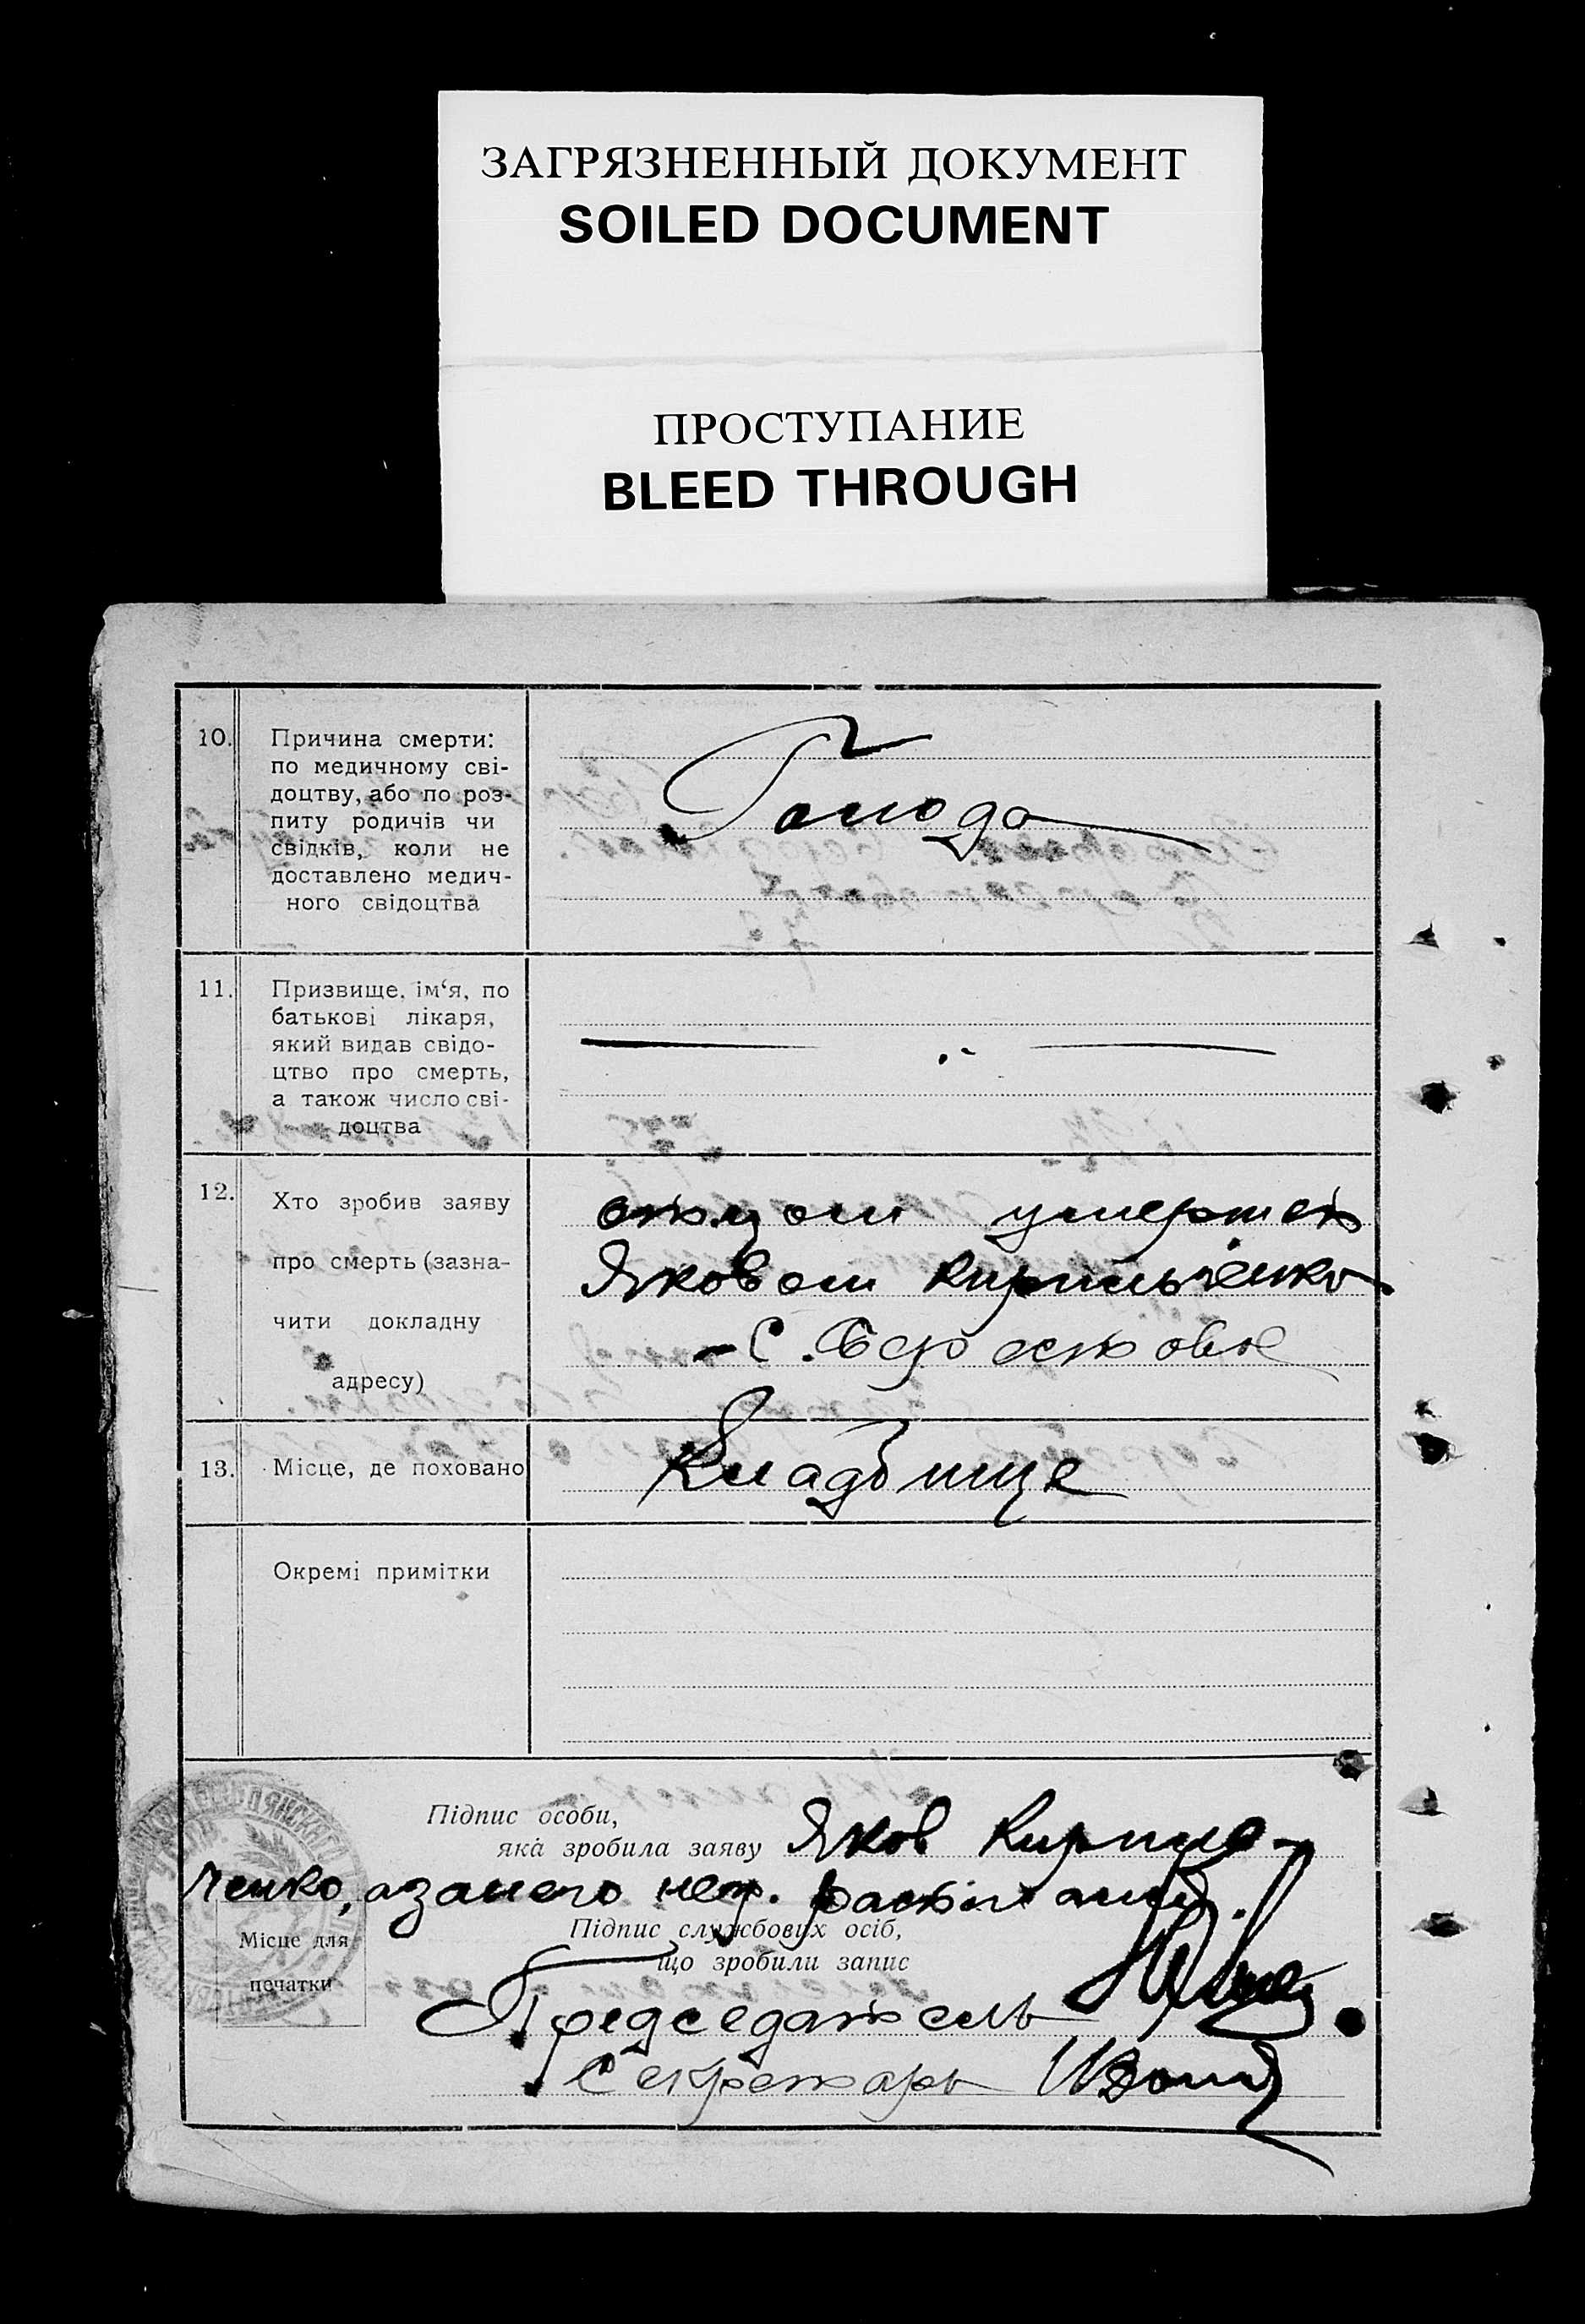 ЗАГРЯЗНЕННЫЙ ДОКУМЕНТ
SOILED DOCUMENT
ПРОСТУПАНИЕ
BLEED THROUGH
10. Причина смерти:
по медичному сві-
доцтву, або по роз-
питу родичів чи
свідків, коли не
доставлено медич-
ного свідоцтва
Голода
11. Призвище, ім‘я, по
батькові лікаря,
який видав свідо-
цтво про смерть,
а також число сві-
доцтва
12. Хто зробив заяву
про смерть (зазна-
чити докладну
адресу)
отцом умершей
Яковом Кирпильченко
- С. Берестовое
13. Місце, де поховано
Кладбище
Окремі примітки
Підпис особи,
яка зробила заяву Яков Кирпиль-
ченко, а за него негр. расписался
Підпис службових осіб,
що зробили запис
Місце для
печатки
Председатель
Секретарь